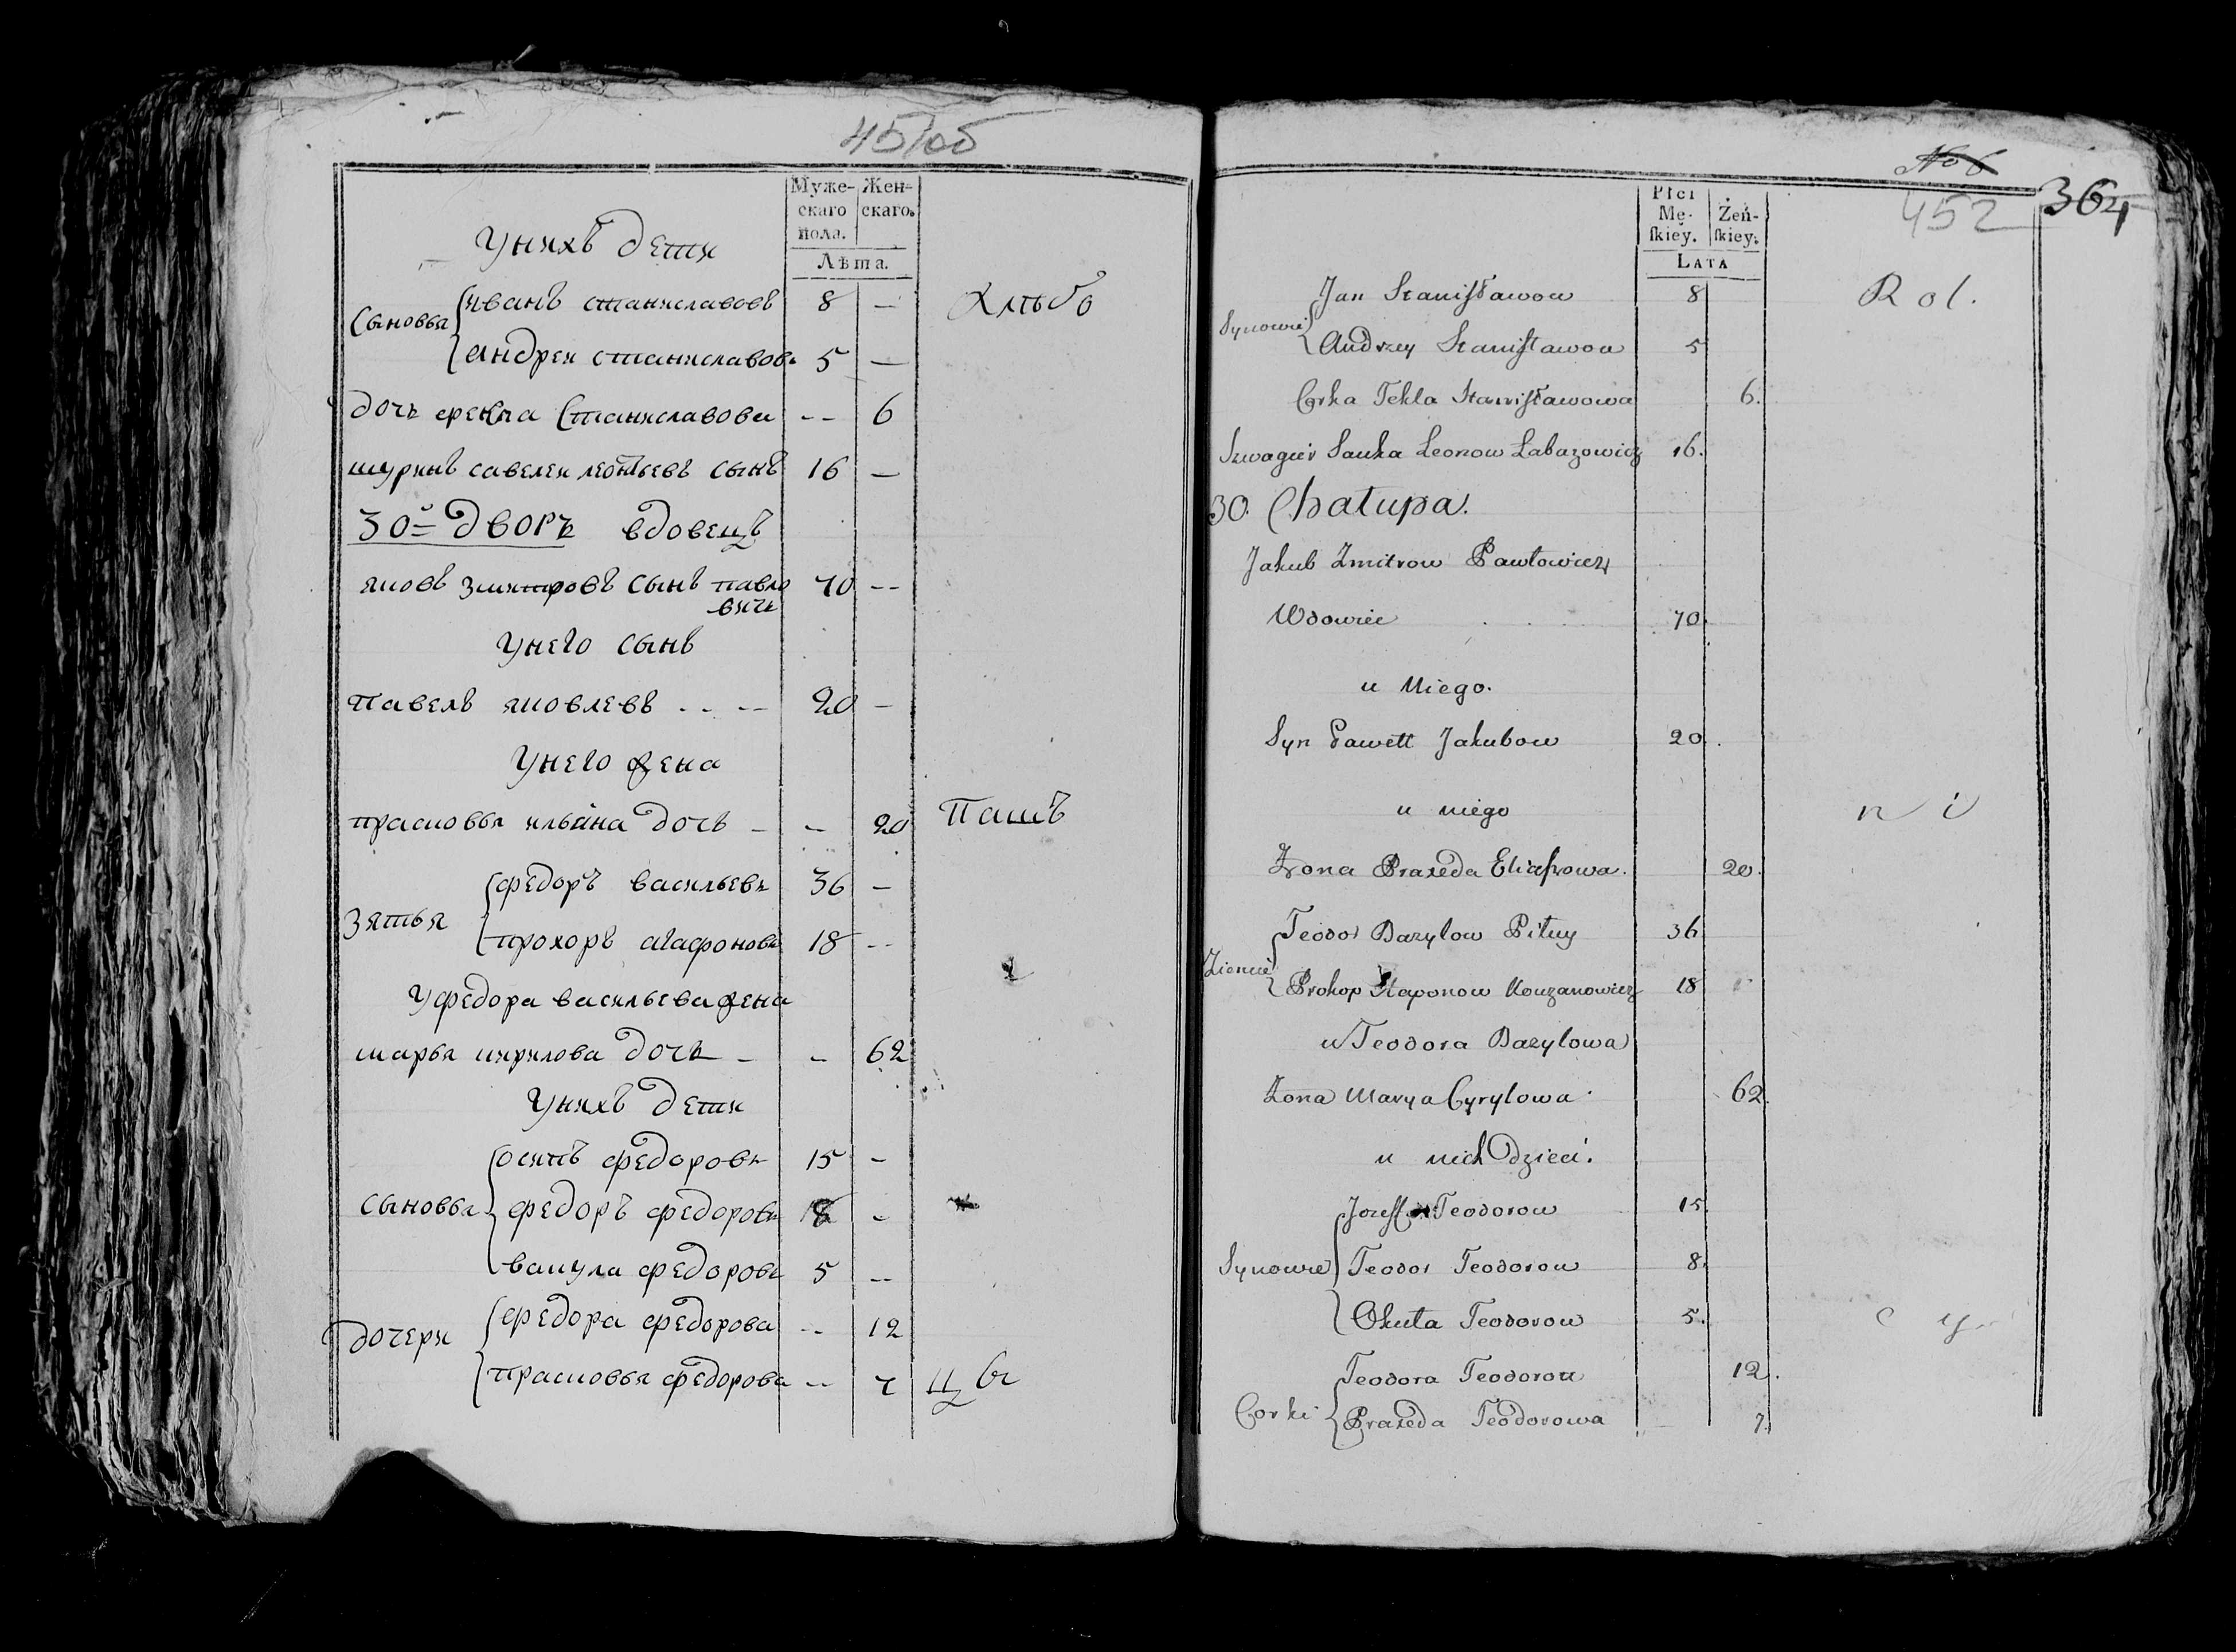 451об
Муже- Жен-
скаго скаго.
пола.
Лѣта.
Унихъ дети
Сыновья
иванъ станиславовъ 8 —
Хлѣбо
андреи станиславовъ 5 —
дочь фекла Станиславова -- 6
шуринъ савелеи леонтьевъ сынъ 16 —
30й дворъ вдовецъ
яковъ змитровъ сынъ павло
вичь 70 --
Унего сынъ
павелъ яковлевъ . . -- 20 —
Унего жена
прасковья ильина дочь — -- 20
Пашъ
зятья
федоръ васильевъ 36 —
прохоръ агафоновъ 18 --
Уфедора васильева жена
марья кирилова дочь — - 62
Унихъ дети
сыновья
осипъ федоровъ 15 -
федоръ федоровъ 8 -
вакула федоровъ 5 --
дочери
федора федорова -- 12
прасковья федорова -- 7
цы
No 6
364
452
Płci
Mę- Żeń-
ſkiey. ſkiey.
LATA
Rol.
Synowie
Jan Staniſławow 8
Andrzey Staniſławow 5
Corka Tekla Staniſławowa 6.
Szwagier Sauka Leonow Labazowicz 16.
30. Chałupa.
Jakub Zmitrow Pawłowicz
Wdowiec 70.
u Niego.
Syn Pawełł Jakubow 20.
u niego
ni
Żona Praxeda Eliaſzowa. 20.
Zięncie
Teodor Bazylow Pituy 36
Prokop Kouzanowicz 18
u Teodora Bazylowa
Żona Marya Cyrylowa 62.
u nich Dzieci.
Synowie
Jozeff Teodorow 15.
Teodor Teodorow 8.
Okuła Teodorow 5.
cy
Corki
Teodora Teodorow 12.
Praxeda Teodorowa 7.